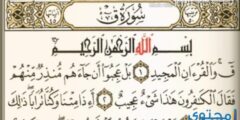 سُورَةُ ق
بِسْمِ اللَّهِ الرَّحْمَٰنِ الرَّحِيمِ
قٓ وَالْقُرْءَانِ الْمَجِيدِ ١ بَلْ عَجِبُوا أَن جَاءَهُم مُّنذِرٌ مِّنْهُمْ
فَقَالَ الْكَٰفِرُونَ هَٰذَا شَىْءٌ عَجِيبٌ ٢ أَءِذَا مِتْنَا وَكُنَّا تُرَابًا ذَٰلِكَ